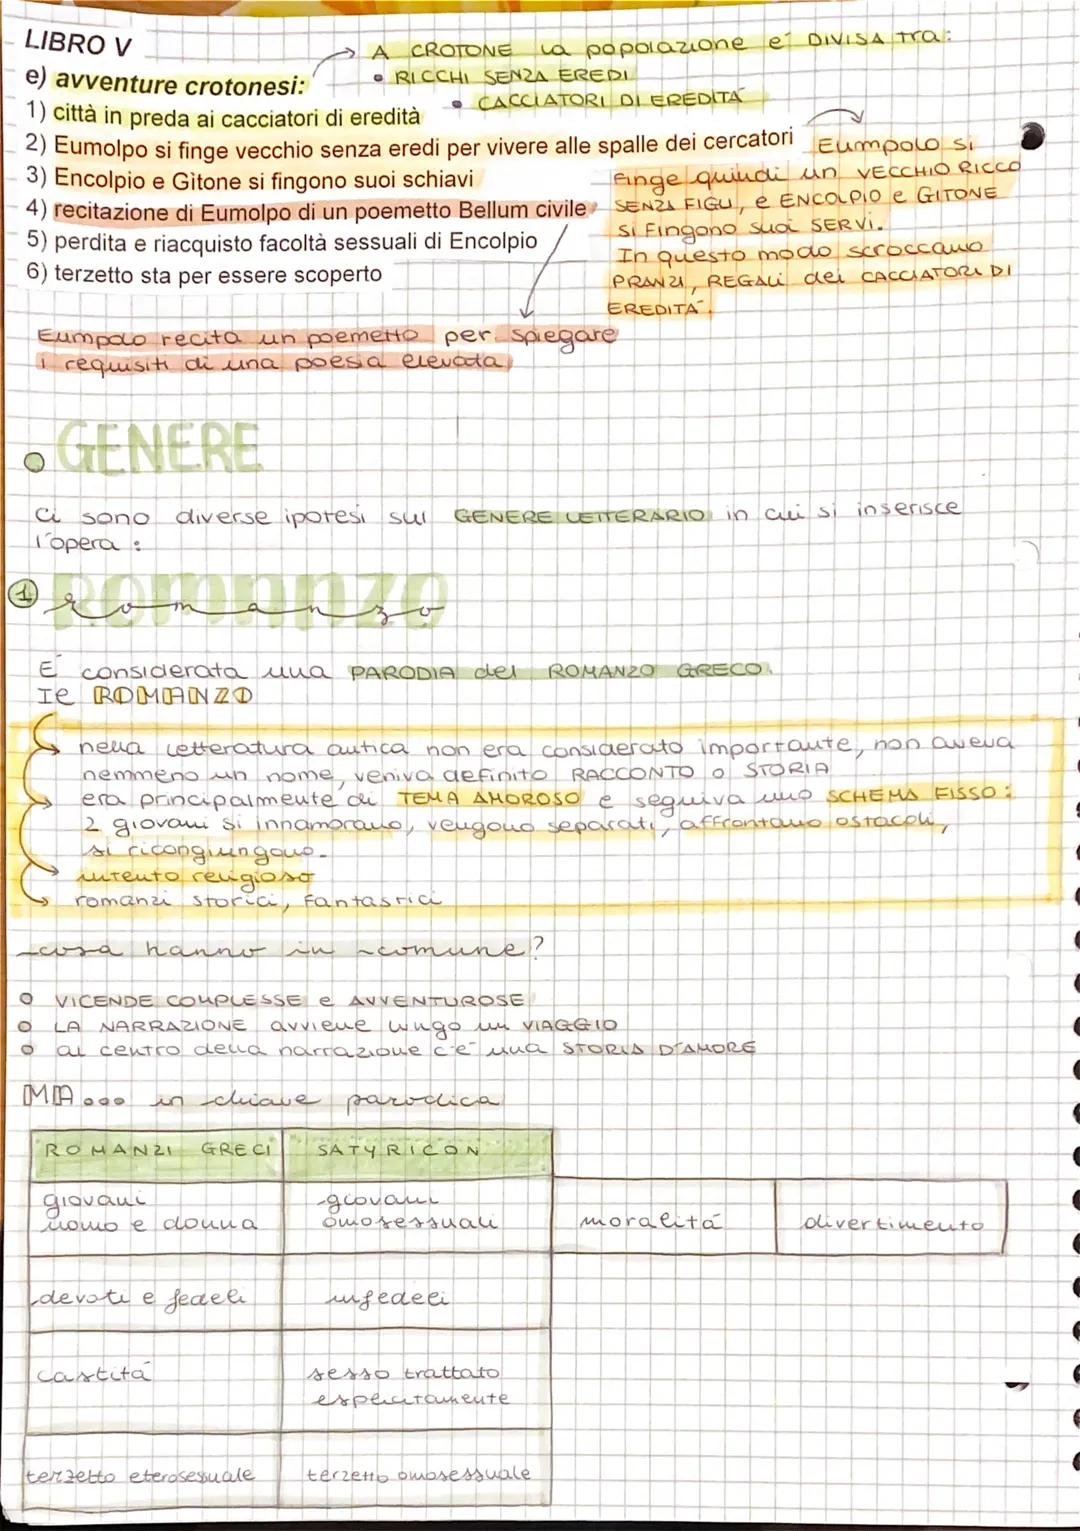 LIBRO V
e) avventure crotonesi:
→ A CROTONE la popolazione é DIVISA tra:
• RICCHI SENZA EREDI
• CACCIATORI DI EREDITÁ
1) città in preda ai cacciatori di eredità
2) Eumolpo si finge vecchio senza eredi per vivere alle spalle dei cercatori
3) Encolpio e Gitone si fingono suoi schiavi
4) recitazione di Eumolpo di un poemetto Bellum civile
5) perdita e riacquisto facoltà sessuali di Encolpio
6) terzetto sta per essere scoperto
Eumpolo si
finge quindi un VECCHIO RICCO
SENZA FIGLI, e ENCOLPIO e GITONE
si fingono suoi SERVI.
In questo modo scroccano
PRANZI, REGALI dei CACCIATORI DI
EREDITÁ.
Eumpolo recita un poemetto per spiegare
i requisiti di una poesia elevata
GENERE
Ci sono diverse ipotesi sul GENERE LETTERARIO in cui si inserisce
l'opera:
1 romanzo
É considerata una PARODIA del ROMANZO GRECO.
Il ROMANZO
→ nella letteratura antica non era considerato importante, non aveva
nemmeno un nome, veniva definito RACCONTO o STORIA
→ era principalmente di TEMA AMOROSO e seguiva uno SCHEMA FISSO:
2 giovani si innamorano, vengono separati, affrontano ostacoli,
si ricongiungono.
→ intento religioso
→ romanzi storici, fantastici
cosa hanno in comune?
○ VICENDE COMPLESSE e AVVENTUROSE
○ LA NARRAZIONE avviene lungo un VIAGGIO
○ al centro della narrazione c'é una STORIA D'AMORE
MA... in chiave parodica
ROMANZI GRECI SATYRICON
giovani giovani
uomo e donna omosessuali moralitá divertimento
devoti e fedeli infedeli
castitá sesso trattato
esplicitamente
terzetto eterosessuale terzetto omosessuale